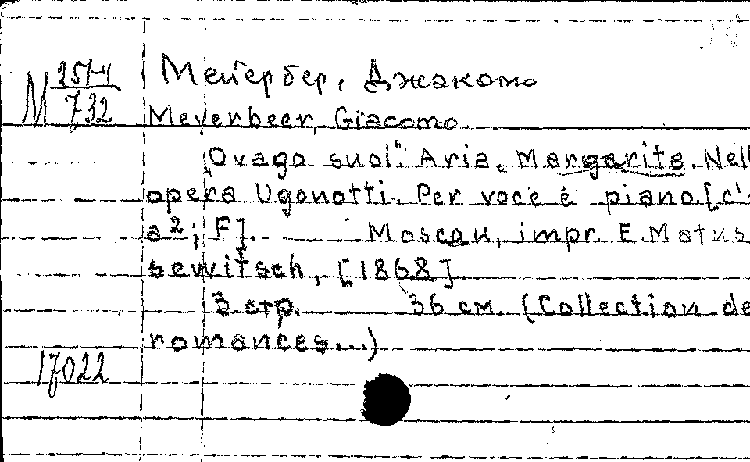 М 251-1
732
Мейербер, Джакомо
Meyerbeer, Giacomo
"O vago suol". Aria. Margarita. Nell
opera Ugonotti. Per voce e piano. [c¹-
a²; F]. Moscau, impr. E. Matus-
sewitsch, [1868].
3 стр. 36 см. (Collection de
romances...)
17022